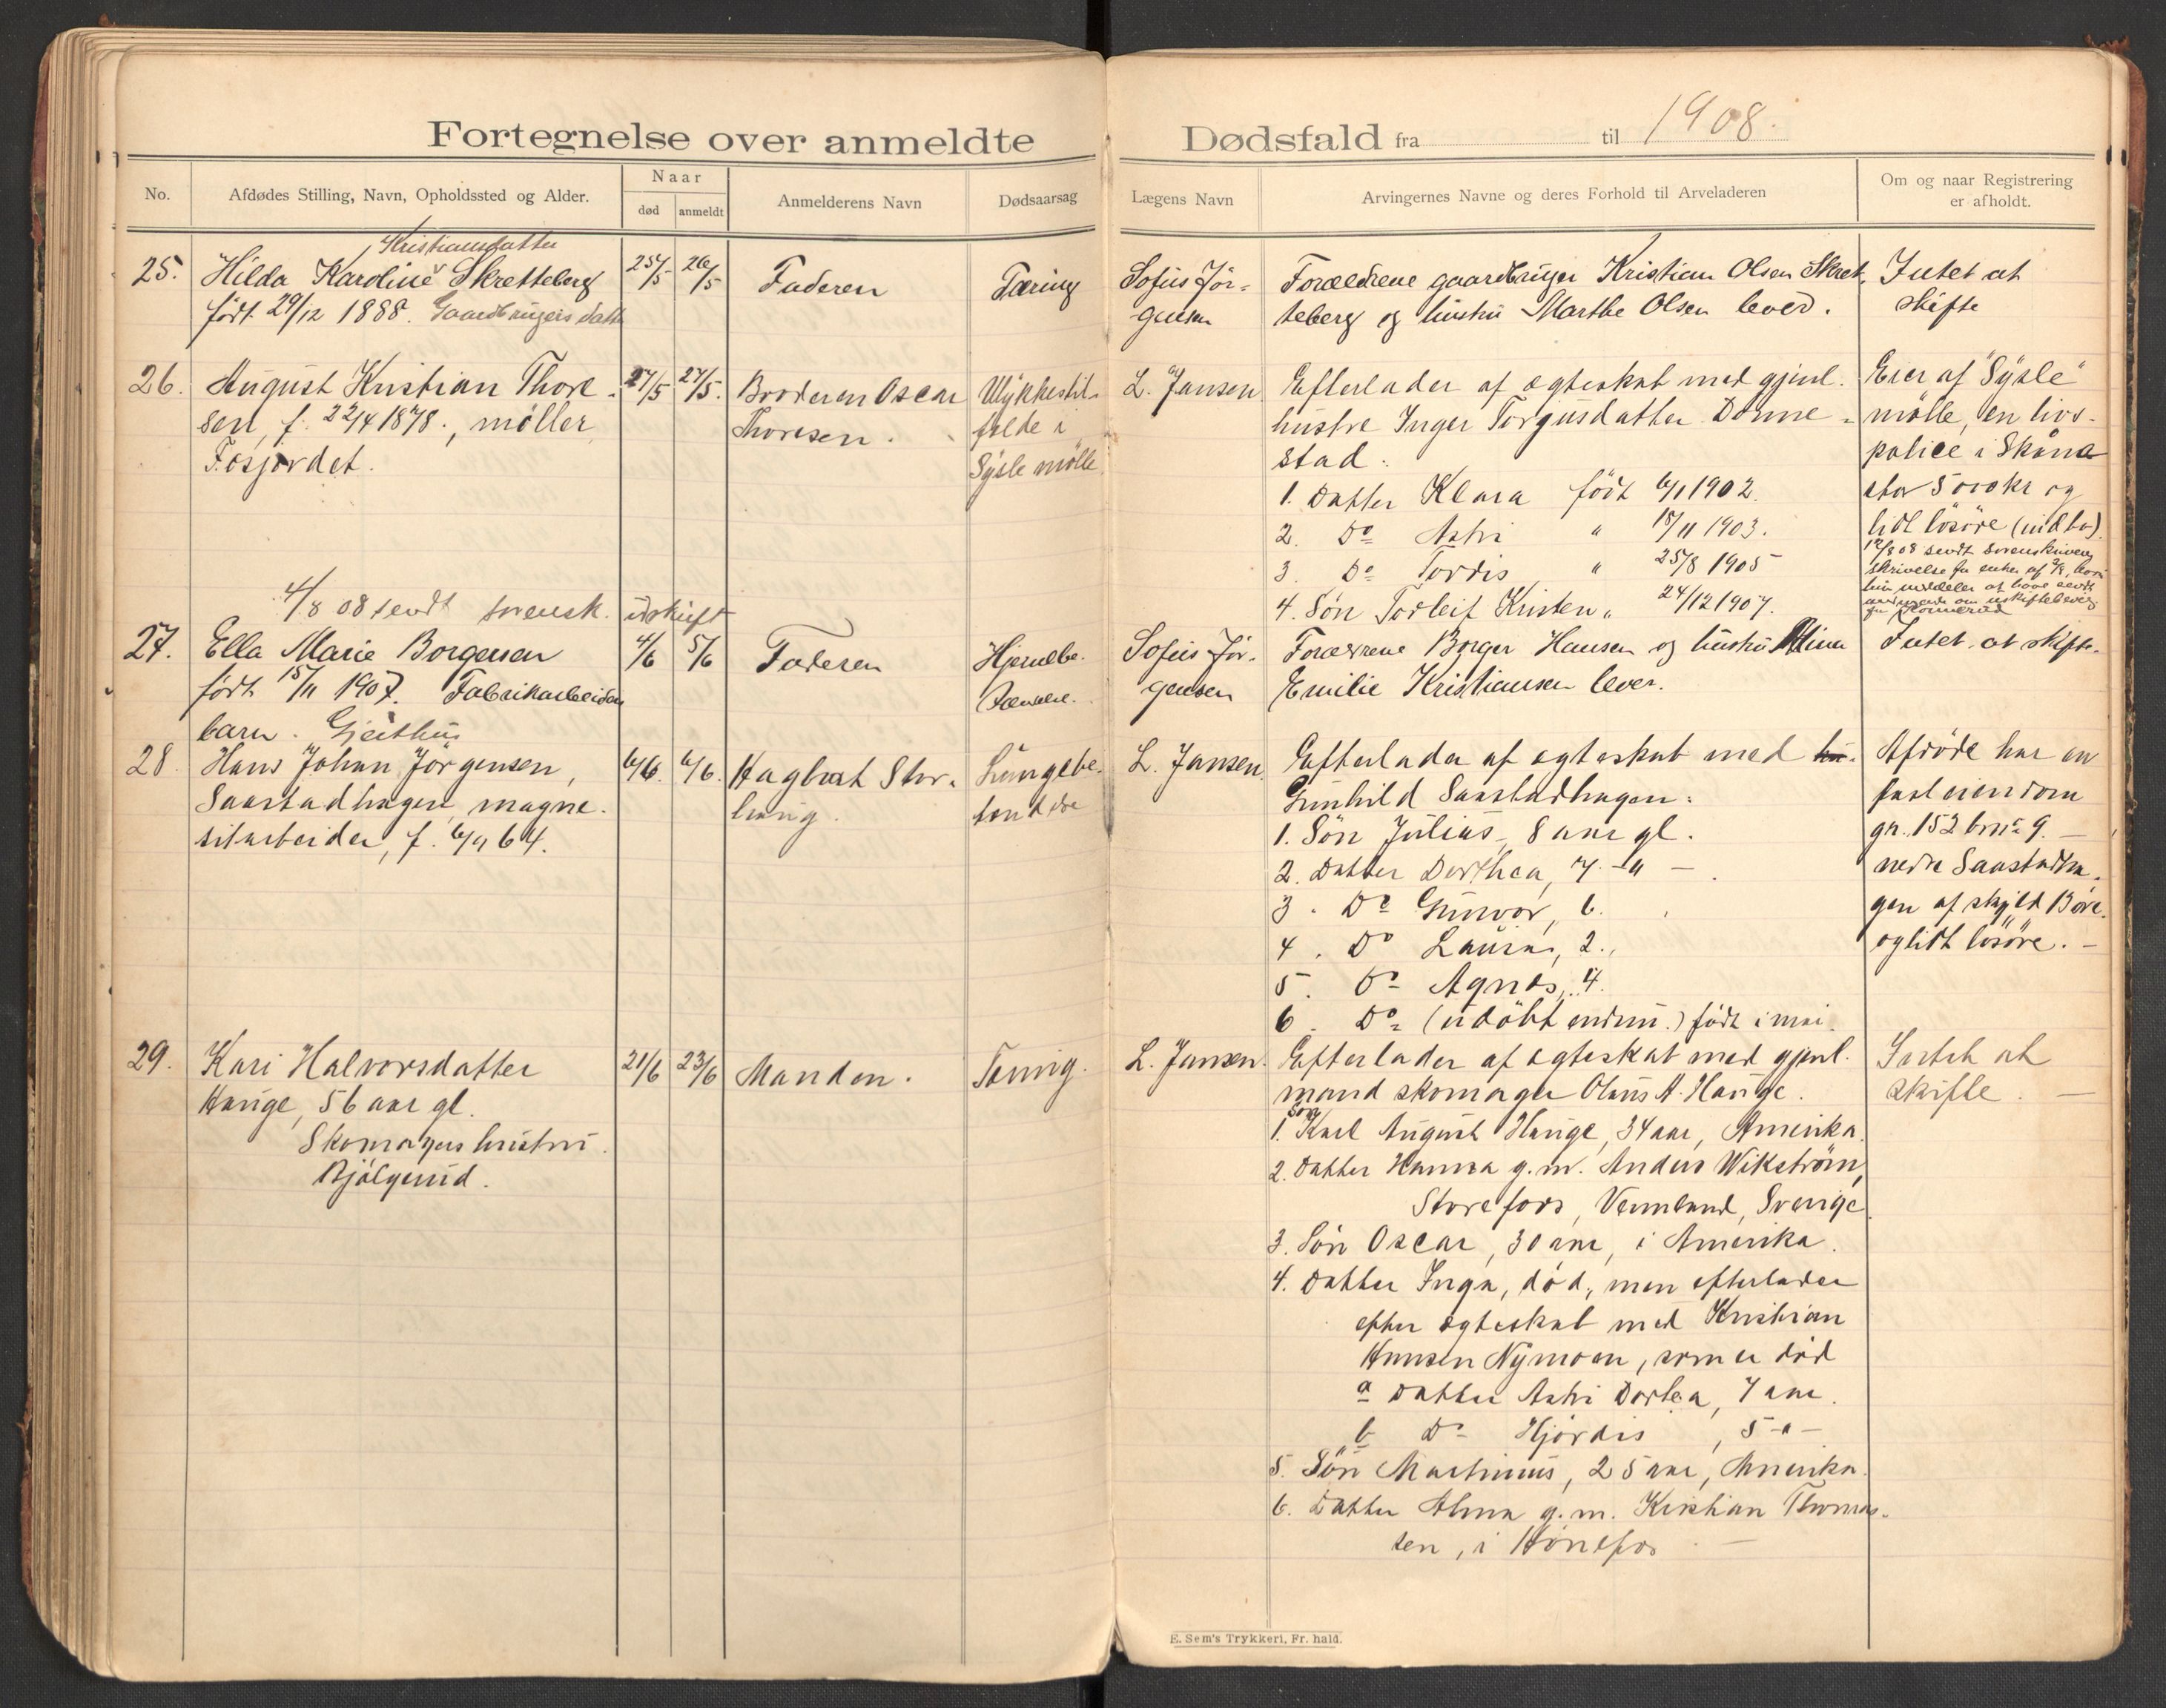 Fortegnelse over anmeldte Dødsfald fra til 1908.
No.
Afdødes Stilling, Navn, Opholdssted og Alder.
Naar
død
anmeldt
Anmelderens Navn
Dødsaarsag
Lægens Navn
Arvingernes Navne og deres Forhold til Arveladeren
Om og naar Registrering
er afholdt.
25.
Kristiansdatter
Hilda Karoline Skretteberg
født 29/12 1888. Gaardbrugers datter
25/5
26/5
Faderen
Tæring
Sofus Jör-
gensen
Forældrene gaardbruger Kristian Olsen Skret-
teberg og hustru Marthe Olsen lever.
Intet at
skifte
26.
August Kristian Thore-
sen, f. 22/4 1878., möller
Fosjordet.
27/5
27/5.
Broderen Oscar
Thoresen.
Ulykkestil-
fælde i
Sysle mölle
L. Jansen
Efterlader af ægteskab med gjenl.
hustru Inger Torgusdatter Denne-
stad:
1. Datter Klara födt 6/1 1902.
2. Do Astri " 18/11 1903.
3. Do Tordis " 25/8 1905
4. Sön Torleif Kristen " 24/12 1907.
Eier af "Sysle"
mölle, en livs-
police i Skåne
stor 500 kr og
lidt lösöre (indbo).
12/8 08 sendt sorenskriveren
skrivelse fra enken af
hun meddeler at have sendt
4/8 08 sendt sorensk. udskrift
27.
Ella Marie Borgersen
födt 15/11 1907. Fabrikarbeider
barn. Gjeithus
4/6
5/6
Faderen
Hjernebe-
tændelse.
Sofus Jör-
gensen
Forældrene Borger Hansen og hustru Stina
Emilie Kristiansen lever.
Intet at skifte.
28.
Hans Johan Jörgensen,
Saastadhagen, magne-
sitarbeider, f. 6/9 64.
6/6.
6/6.
Hagbart Stor-
haug.
Lungebe-
tændelse
L. Jansen.
Efterlader af ægteskab med hu-
Gunhild Saastadhagen:
1. Sön Julius, 8 aar gl.
2. Datter Dorthea, 7 -"-
3. Do Gunvor, 6.
4. Do Laura, 2.
5. Do Agnes, 4.
6. Do (udöbt endnu.) födt i mai.
Afdöde har en
fast eiendom
gn. 152 brn. 9.
nedre Saastadha-
gen af skyld 13 öre.
og lidt lösöre.
29.
Kari Halvorsdatter
Hauge, 56 aar gl.
Skomagers hustru.
Bjölgerud.
21/6
23/6
Manden.
Tæring.
L. Jansen.
Efterlader af ægteskab med gjenl.
mand skomager Olaus A. Hauge.
Sön
1. Karl August Hauge, 34 aar, Amerika.
2. Datter Hanna g. m. Anders Wikström,
Storefors, Vermland, Sverige.
3. Sön Oscar, 30 aar, i Amerika.
4. Datter Inga, död, men efterlader
efter ægteskab med Kristian
Hansen Nymoen, som er död
a Datter Astri Dortea, 7 aar.
b Do Hjördis, 5 -"-
5. Sön Martinius, 25 aar, Amerika.
6. Datter Alma g. m. Kristian Thomas-
sen, i Hönefos
Intet at
skifte.
E. Sem's Trykkeri, Fr. hald.